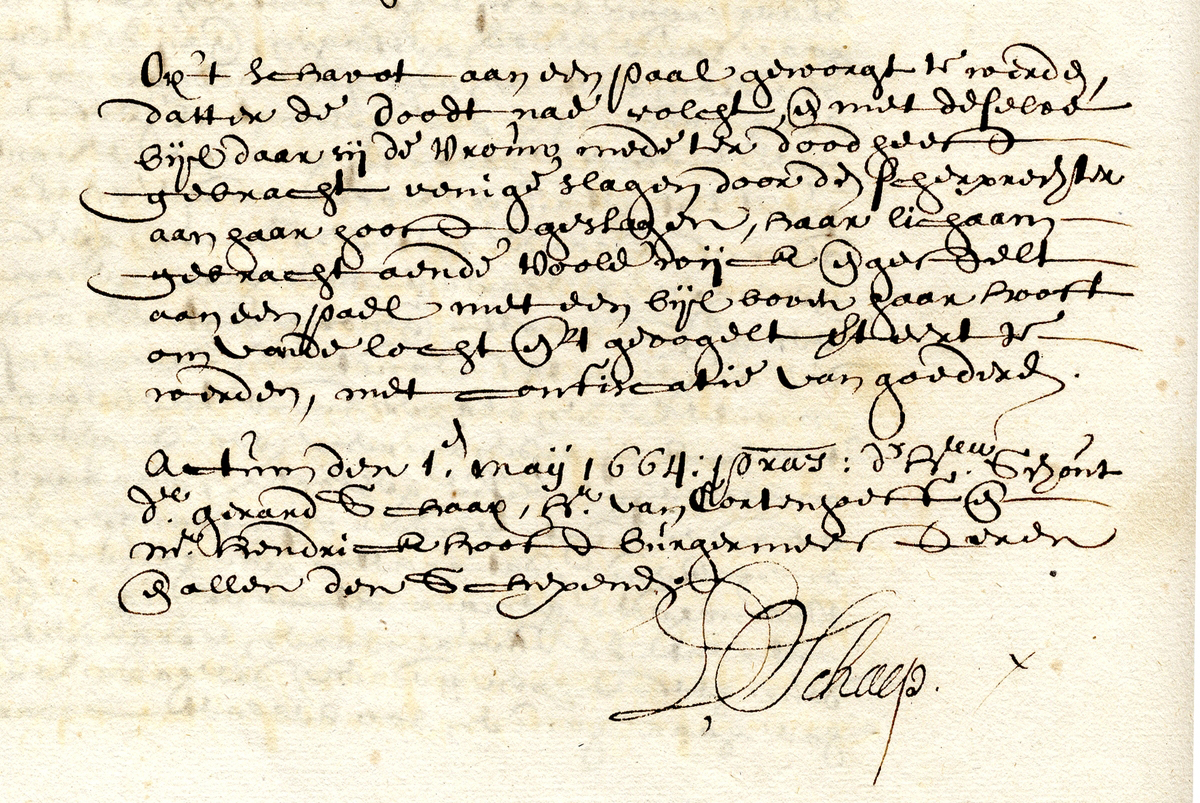 Op't schavot aan een paal geworgt te werden,
datter de doodt nae volcht, en met deselve
bijl daar sij de Vrouw mede ter dood heeft
gebracht eenige slagen door den scherprechter
aan haar hooft geslagen, haar lichaam
gebracht aende Voolewijck en gestelt
aan een pael met een bijl boven haar hooft
om vande locht en 't gevogelt verteert te
werden, met confiscatie van goederen.
Actum den 1en. Maij 1664: præs: de Heer Schout
Dr. Gerard Schaap, Hr. van Cortenhoeff en
Mr. Hendrick Hooft Burgermeesteren
en allen den Schepenen
Schaep.